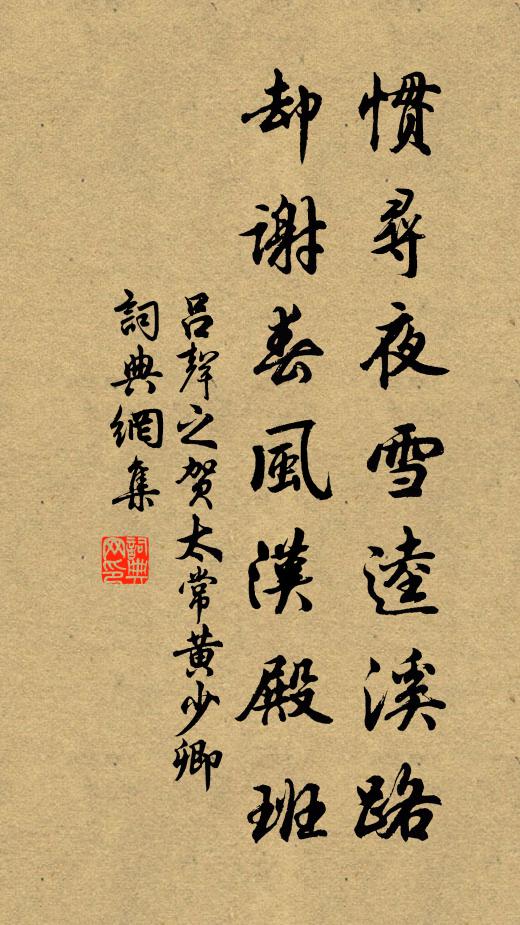 慣尋夜雪逵溪路
却謝春風漢殿班
呂聲之賀太常黃少卿
詞典網集
詞典网印